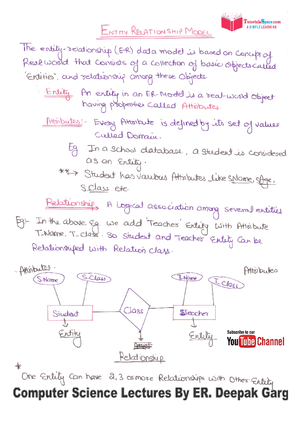 TutorialsSpace.com
A SIMPLE LEARNING
ENTITY RELATIONSHIP MODEL
The entity-relationship (ER) data model is based on Concept of
Real world that Consists of a Collection of basic Objects Called
'Entities', and relationship among these Objects.
Entity An entity in an ER-Model is a real-world Object
having properties Called Attributes.
Attributes:- Every Attribute is defined by its set of values
Called Domain.
Eg In a School database, a student is considered
as an Entity.
**→ Student has various Attributes like SName, SAge,
S.Class etc.
Relationship A logical association among several entities
Eg:- In the above Eg we add 'Teacher' Entity with Attribute
T.Name, T.class. So Student and Teacher Entity Can be
Relationshiped with Relation class.
Attributes
Attributes
S.Name
S.Class
T.Name
T.Class
Student
Class
Teacher
Entity
Entity
Relationship
Subscribe to our
YouTube Channel
*
One Entity Can have 2,3 or more Relationships with Other Entity
Computer Science Lectures By ER. Deepak Garg